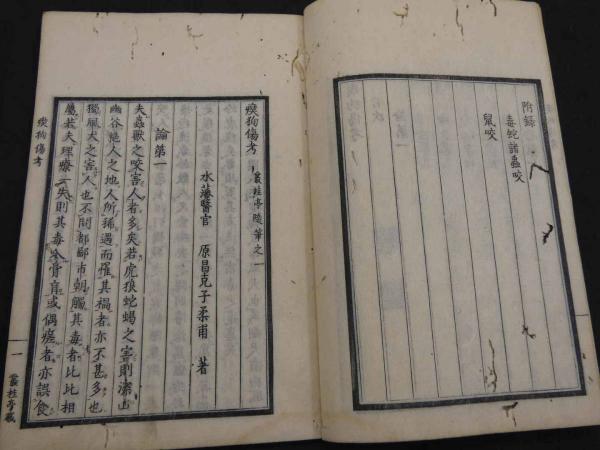 附録
毒蛇諸蟲咬
鼠咬
瘈狗傷考 叢桂亭随筆之一
水藩醫官 原昌克子柔甫 著
論第一
夫蟲獸之咬害人者多矣若虎狼蛇蝎之害則深山
幽谷絶人之地人所稀遇而罹其禍者亦不甚多也
獨猘犬之害人也不問都鄙市朝觸其毒者比比相
屬若夫理療一失則其毒冷骨育或偶瘥者亦誤食
瘈狗傷考
一
叢桂亭藏